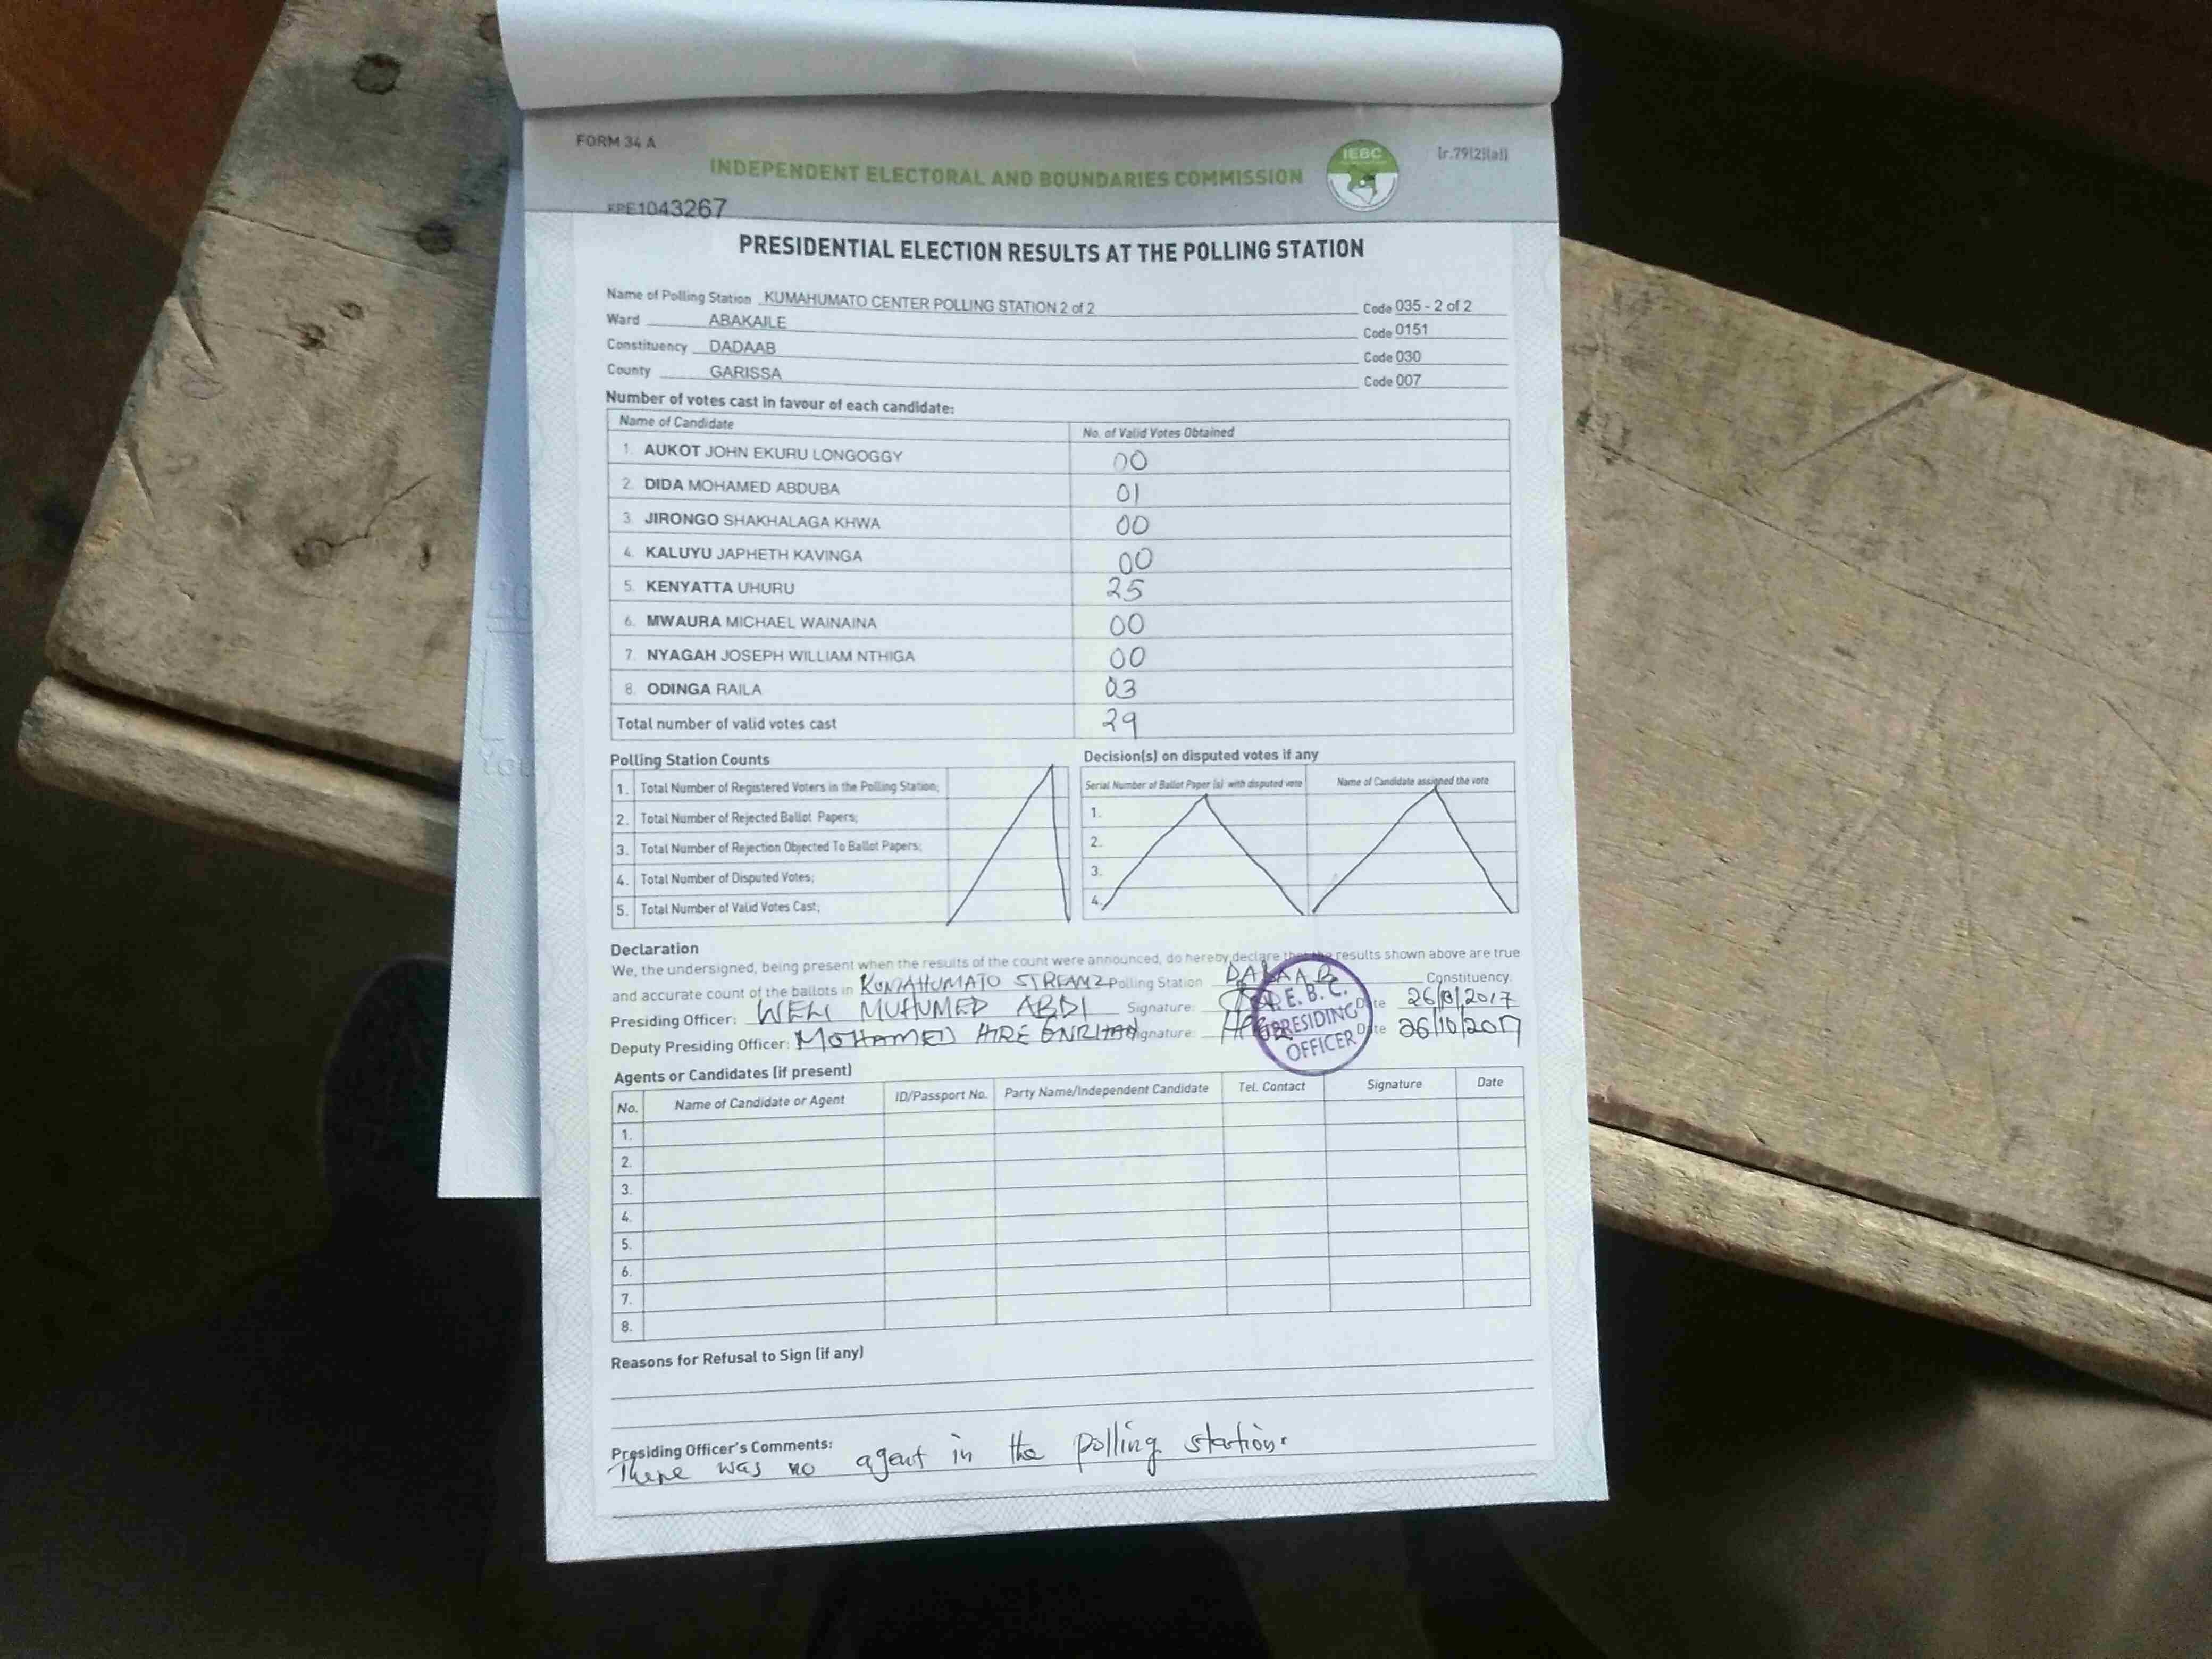 FORM 34 A
[r.79(2)(a)]
INDEPENDENT ELECTORAL AND BOUNDARIES COMMISSION
IEBC
KPE1043267
PRESIDENTIAL ELECTION RESULTS AT THE POLLING STATION
Name of Polling Station KUMAHUMATO CENTER POLLING STATION 2 of 2 Code 035 - 2 of 2
Ward ABAKAILE Code 0151
Constituency DADAAB Code 030
County GARISSA Code 007
Number of votes cast in favour of each candidate:
Name of Candidate No. of Valid Votes Obtained
1. AUKOT JOHN EKURU LONGOGGY 00
2. DIDA MOHAMED ABDUBA 01
3. JIRONGO SHAKHALAGA KHWA 00
4. KALUYU JAPHETH KAVINGA 00
5. KENYATTA UHURU 25
6. MWAURA MICHAEL WAINAINA 00
7. NYAGAH JOSEPH WILLIAM NTHIGA 00
8. ODINGA RAILA 03
Total number of valid votes cast 29
Polling Station Counts
1. Total Number of Registered Voters in the Polling Station;
2. Total Number of Rejected Ballot Papers;
3. Total Number of Rejection Objected To Ballot Papers;
4. Total Number of Disputed Votes;
5. Total Number of Valid Votes Cast;
Decision(s) on disputed votes if any
Serial Number of Ballot Paper (s) with disputed vote Name of Candidate assigned the vote
1.
2.
3.
4.
Declaration
We, the undersigned, being present when the results of the count were announced, do hereby declare that the results shown above are true
and accurate count of the ballots in KUMAHUMATO STREAM 2 Polling Station DADAAB Constituency.
Presiding Officer: WELI MUHUMED ABDI Signature: Date 26/10/2017
Deputy Presiding Officer: MOHAMED HIRE Signature: Date 26/10/2017
I.E.B.C.
PRESIDING
OFFICER
Agents or Candidates (if present)
No. Name of Candidate or Agent ID/Passport No. Party Name/Independent Candidate Tel. Contact Signature Date
1.
2.
3.
4.
5.
6.
7.
8.
Reasons for Refusal to Sign (if any)
Presiding Officer's Comments:
There was no agent in the polling station.